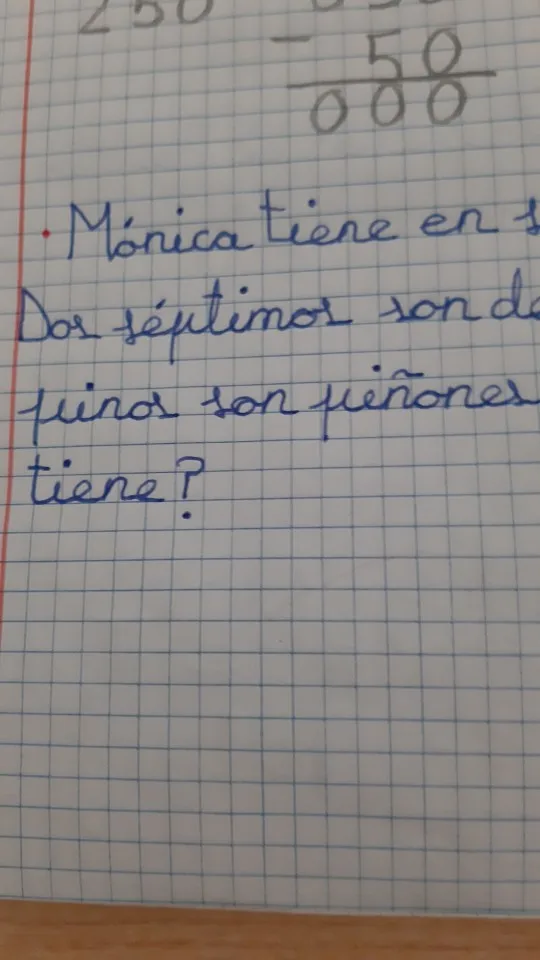 250
- 50
000
· Mónica tiene en s
Dos séptimos son de
pinos son piñones
tiene?